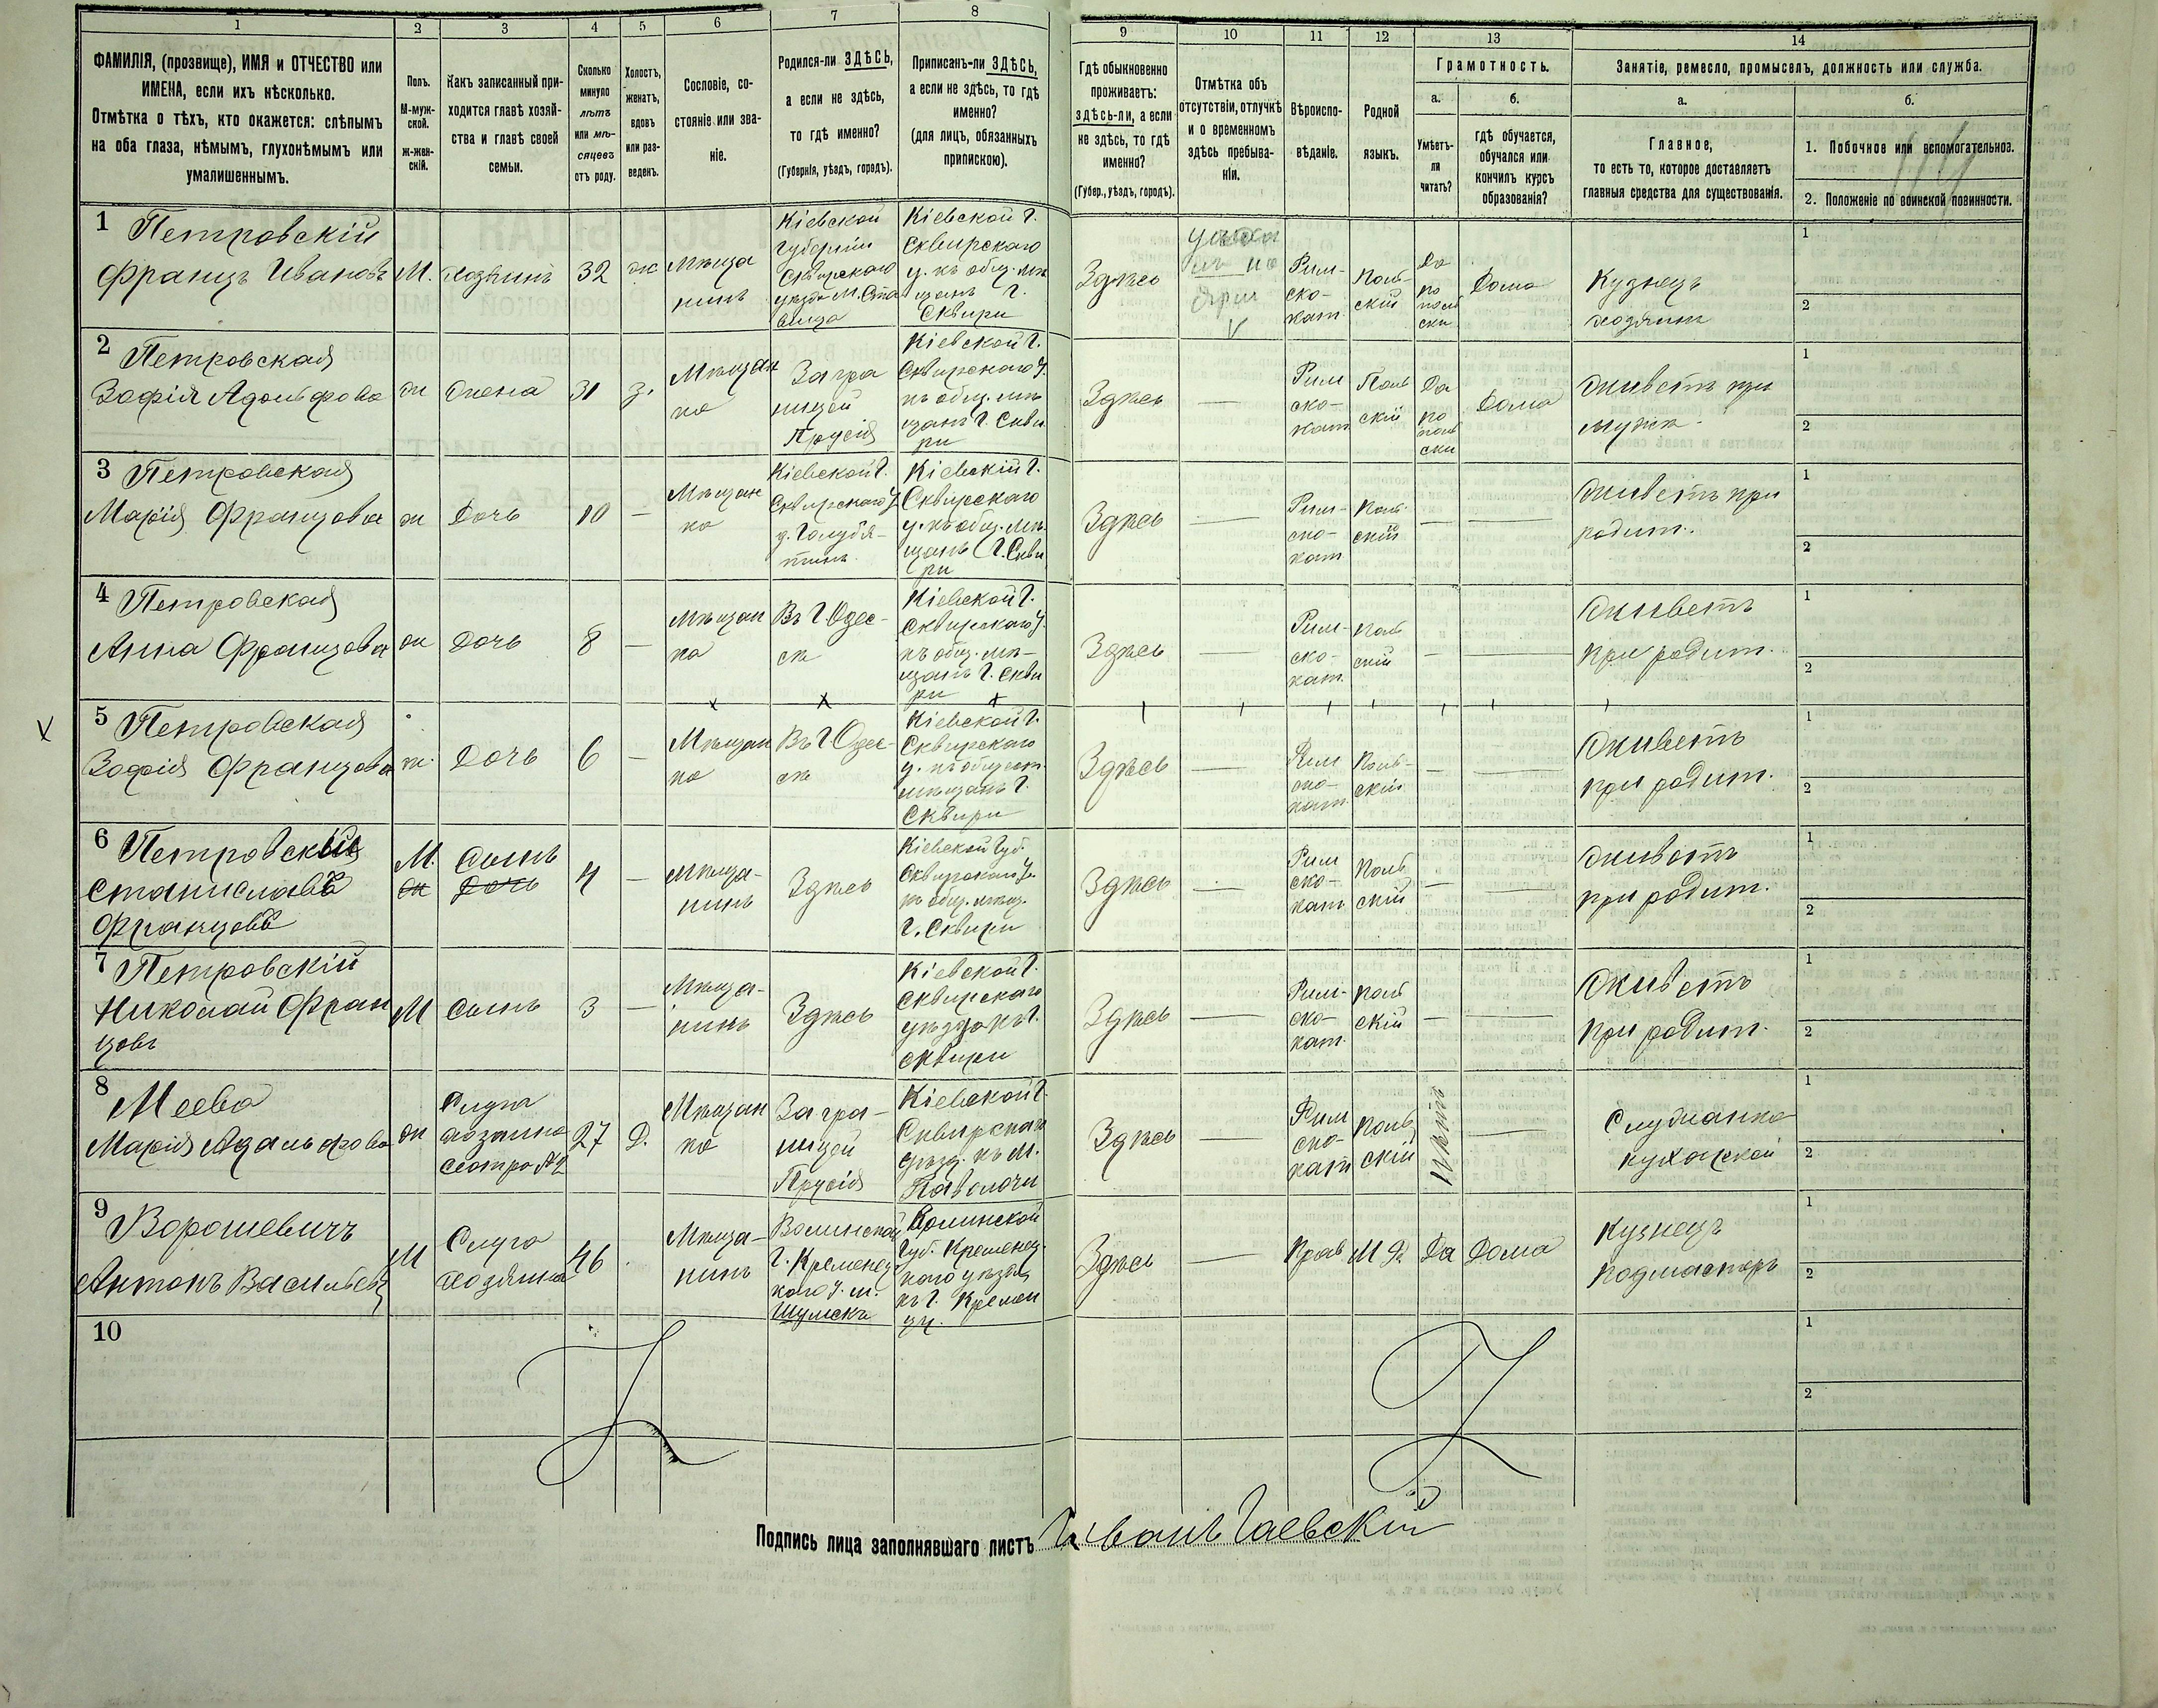 1
2
3
4
5
6
7
8
9
10
11
12
13
14
ФАМИЛІЯ, (прозвище), ИМЯ и ОТЧЕСТВО или
ИМЕНА, если ихъ нѣсколько.
Отмѣтка о тѣхъ, кто окажется: слѣпымъ
на оба глаза, нѣмымъ, глухонѣмымъ или
умалишеннымъ.
Полъ.
М-муж-
ской.
ж-жен-
скій.
Какъ записанный при-
ходится главѣ хозяй-
ства и главѣ своей
семьи.
Сколько
минуло
лѣтъ
или мѣ-
сяцевъ
отъ роду.
Холостъ,
женатъ,
вдовъ
или раз-
веденъ.
Сословіе, со-
стояніе или зва-
ніе.
Родился-ли ЗДѢСЬ,
а если не здѣсь,
то гдѣ именно?
(Губернія, уѣздъ, городъ).
Приписанъ-ли ЗДѢСЬ,
а если не здѣсь, то гдѣ
именно?
(для лицъ, обязанныхъ
припискою).
Гдѣ обыкновенно
проживаетъ:
здѣсь-ли, а если
не здѣсь, то гдѣ
именно?
(Губер., уѣздъ, городъ).
Отмѣтка объ
отсутствіи, отлучкѣ
и о временномъ
здѣсь пребыва-
ніи.
Вѣроиспо-
вѣданіе.
Родной
языкъ.
Грамотность.
а.
б.
Умѣетъ-
ли
читать?
гдѣ обучается,
обучался или
кончилъ курсъ
образованія?
Занятіе, ремесло, промыселъ, должность или служба.
а.
б.
Главное,
то есть то, которое доставляетъ
главныя средства для существованія.
1. Побочное или вспомогательное.
2. Положеніе по воинской повинности.
114
1 Петровскій
Францъ Ивановъ
М.
Хозяинъ
32
ж
Мѣща
нинъ
Кіевской
губерніи
Сквирскаго
уѣзда М. Ста
вища
Кіевской г.
Сквирскаго
у. къ общ. мѣ
щанъ г.
Сквири
Здѣсь
Рим-
ско-
кат.
Поль-
скій
Да
по
поль
ски
Дома
Кузнецъ
хозяинъ
1
2
2 Петровская
Зофія Адольфова
ж
Жена
31
з.
Мѣщан
ка
Загра
ницей
Прусія
Кіевской г.
Сквирскаго у.
къ общ. мѣ
щанъ г. Скви
ри
Здѣсь
—
Рим
ско-
кат
Поль
скій
Да
по
поль
ски
Дома
Живетъ при
мужѣ.
1
2
3 Петровская
Марія Францова
ж
Дочь
10
—
Мѣщан
ка
Кіевской г.
Сквирскаго у.
д. Голубя-
тинъ
Кіевскій г.
Сквирскаго
у. къ общ. мѣ-
щанъ г. Скви
ри
Здѣсь
—
Рим-
ско-
кат
Поль-
скій
—
—
Живетъ при
родит.
1
2
4 Петровская
Анна Францова
ж
Дочь
8
—
Мѣщан
ка
Въ г Одес-
сѣ
Кіевской г.
Сквирскаго у.
къ общ. мѣ-
щанъ г. Скви
ри
Здѣсь
—
Рим-
ско-
кат.
Поль
скій
—
—
Живетъ
при родит.
1
2
5 Петровская
Зофія Францова
ж.
Дочь
6
—
Мѣщан
ка
Въ г Одес-
сѣ
Кіевской г.
Сквирскаго
у. къ общест.
мѣщанъ г.
Сквири
Здѣсь
—
Рим
ско-
кат.
Поль-
скій
—
—
Живетъ
при родит.
1
2
6 Петровскій
Станиславъ
Францовъ
М.
ж
Сынъ
Дочь
4
—
Мѣща-
нинъ
Здѣсь
Кіевской губ.
Сквирскаго у.
къ общ. мѣщ.
г. Сквири
Здѣсь
—
Рим
ско-
кат
Поль
скій
—
—
Живетъ
при родит.
1
2
7 Петровскій
Николай Фран
цовъ
М
Сынъ
3
—
Мѣща-
нинъ
Здѣсь
Кіевской г.
Сквирскаго
уѣзда къ г.
Сквири
Здѣсь
—
Рим-
ско-
кат.
Поль
скій
—
—
Живетъ
при родит.
1
2
8
Марія Адольфова
ж
Слуга
хозяина
сестра № 2
27
Д.
Мѣщан
ка
Загра-
ницей
Прусія
Кіевской г.
Сквирскаго
уѣзд. къ м.
Паволочи
Здѣсь
—
Рим
ско-
кат
Поль
скій
Нѣтъ
—
Служанка
кухаркой
1
2
9 Ворошевичъ
Антонъ Васильев
М
Слуга
хозяина
46
Мѣща-
нинъ
Волинской
г. Кременец
каго у. м.
Шумскъ
Волинской
губ. Кременец-
каго уѣзда
къ г. Кремен
цу.
Здѣсь
—
Прав
М Р.
Да
Дома
Кузнецъ
подмастерь
1
2
10
1
2
Подпись лица заполнявшаго листъ Иванъ Гаевскій